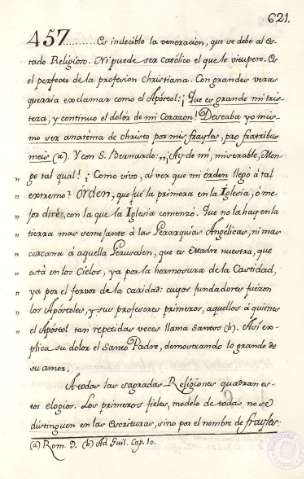 621.
457....... Es indecible la veneracion, que se debe al es-
tado Religioso. Ni puede ser católico el que le vitupere. Es
el perfecto de la profesion Christiana. Con grandes veras
querria exclamar como el Apóstol: ¡Que es grande mi tris-
teza, y continuo el dolor de mi Corazon! Deseaba yo mis-
mo ser anatema de Christo por mis frayles, pro fratribus
meis (a). Y con S. Bernardo: „¡Ay de mi, miserable, Mon-
„ ge tal qual! ¡Como vivo, al ver que mi orden llegó á tal
„ extremo? Orden, que fué la primera en la Iglesia, ó me-
„ jor diré, con la que la Iglesia comenzó. Que no la hay en la
„ tierra mas semejante á las Gerarquias Angélicas, ni mas
„ cercana á aquella Jerusalen, que es Madre nuestra, que
„ está en los Cielos, ya por la hermosura de la Castidad,
„ ya por el fervor de la caridad: cuyos fundadores fueron
„ los Apóstoles, y sus profesores primeros, aquellos á quienes
„ el Apóstol tan repetidas veces llama santos (b). Así ex-
plica su dolor el Santo Padre, demostrando lo grande de
su amor.
A todas las sagradas Religiones quadran es-
tos elogios. Los primeros fieles, modelo de todas, no se
distinguen en las escrituras, sino por el nombre de frayles.
(a) Rom. 9. (b) Ad Guil. Cap. 10.